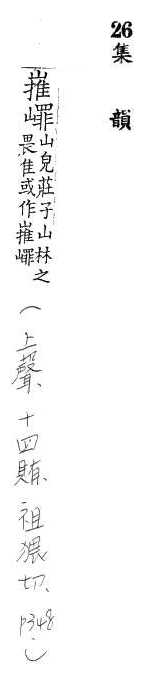 26 集韻
嶊嶵山皃莊子山林之
畏隹或作嶊嶵
(上聲、十四賄、祖猥切、p348。)